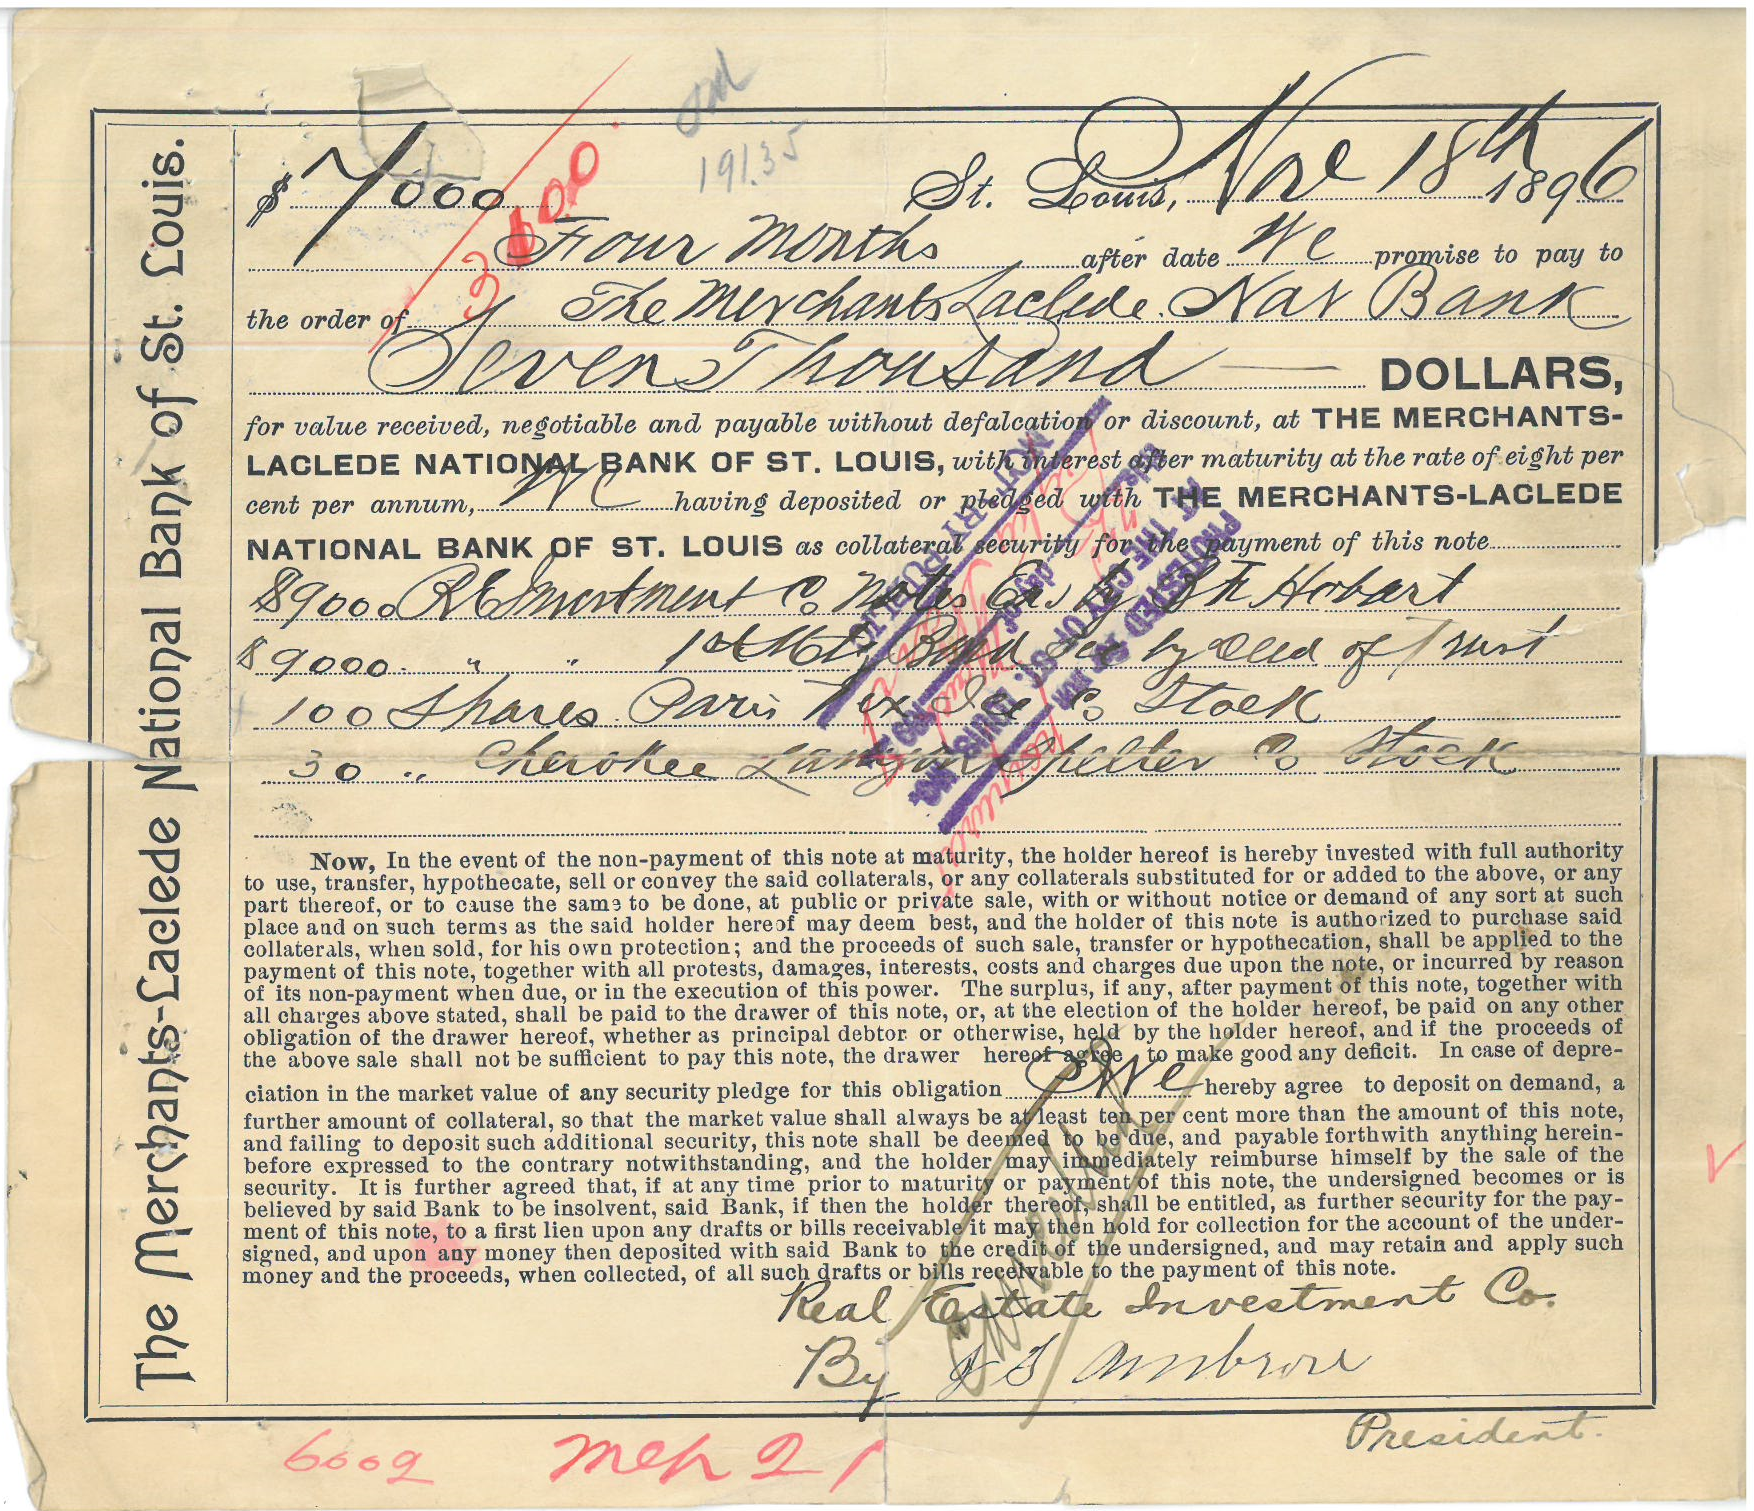 The Merchants-Laclede National Bank of St. Louis.
191.35
$ 7000
3600
St. Louis, Nov 18th 1896
Four Months after date We promise to pay to
the order of The Merchants Laclede Nat Bank
Seven Thousand — DOLLARS,
for value received, negotiable and payable without defalcation or discount, at THE MERCHANTS-
LACLEDE NATIONAL BANK OF ST. LOUIS, with interest after maturity at the rate of eight per
cent per annum, We having deposited or pledged with THE MERCHANTS-LACLEDE
NATIONAL BANK OF ST. LOUIS as collateral security for the payment of this note
$9000 RE Investment Co Notes by Hobart
$9000 " " 1st Bond Sec by Deed of Trust
100 Shares Paris Tex Ice Co Stock
30 " Cherokee Lanyon Spelter Co Stock
PROTESTED
AT THE CITY OF ST. LOUIS
day of
NOTARY PUBLIC
Now, In the event of the non-payment of this note at maturity, the holder hereof is hereby invested with full authority
to use, transfer, hypothecate, sell or convey the said collaterals, or any collaterals substituted for or added to the above, or any
part thereof, or to cause the same to be done, at public or private sale, with or without notice or demand of any sort at such
place and on such terms as the said holder hereof may deem best, and the holder of this note is authorized to purchase said
collaterals, when sold, for his own protection; and the proceeds of such sale, transfer or hypothecation, shall be applied to the
payment of this note, together with all protests, damages, interests, costs and charges due upon the note, or incurred by reason
of its non-payment when due, or in the execution of this power. The surplus, if any, after payment of this note, together with
all charges above stated, shall be paid to the drawer of this note, or, at the election of the holder hereof, be paid on any other
obligation of the drawer hereof, whether as principal debtor or otherwise, held by the holder hereof, and if the proceeds of
the above sale shall not be sufficient to pay this note, the drawer hereof agree to make good any deficit. In case of depre-
ciation in the market value of any security pledge for this obligation We hereby agree to deposit on demand, a
further amount of collateral, so that the market value shall always be at least ten per cent more than the amount of this note,
and failing to deposit such additional security, this note shall be deemed to be due, and payable forthwith anything herein-
before expressed to the contrary notwithstanding, and the holder may immediately reimburse himself by the sale of the
security. It is further agreed that, if at any time prior to maturity or payment of this note, the undersigned becomes or is
believed by said Bank to be insolvent, said Bank, if then the holder thereof, shall be entitled, as further security for the pay-
ment of this note, to a first lien upon any drafts or bills receivable it may then hold for collection for the account of the under-
signed, and upon any money then deposited with said Bank to the credit of the undersigned, and may retain and apply such
money and the proceeds, when collected, of all such drafts or bills receivable to the payment of this note.
Cancelled
Real Estate Investment Co.
By Ambrose
President.
6002 Mch 21